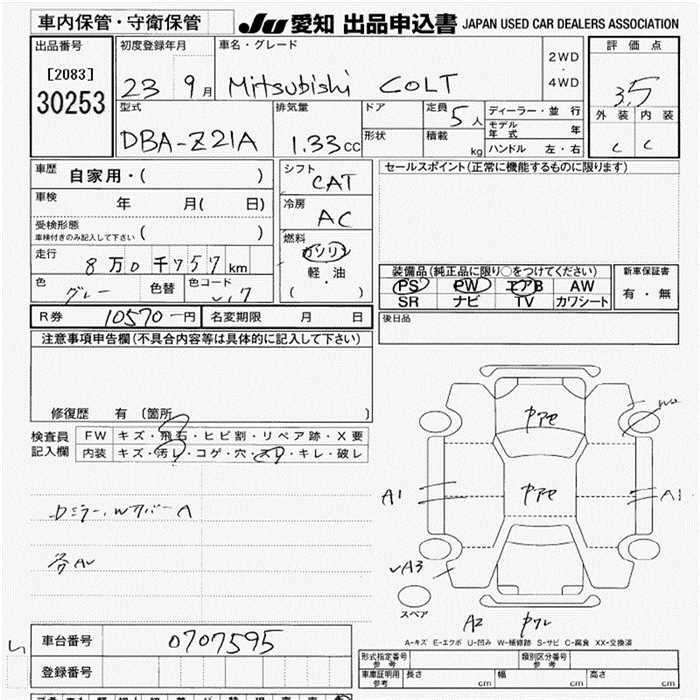 車内保管・守衛保管
JU 愛知 出品申込書 JAPAN USED CAR DEALERS ASSOCIATION
出品番号
[2083]
30253
初度登録年月
23 9月
車名・グレード
Mitsubishi COLT
2WD
・
4WD
評価点
3.5
外装 内装
C C
型式
DBA-Z21A
排気量
1.33cc
ドア
形状
定員 5人
積載 kg
ディーラー・並行
モデル年式 年
ハンドル 左・右
車歴 自家用・( )
車検 年 月( 日)
受検形態
車検付きのみ記入して下さい ( )
走行 8万0千757km
色 グレー 色替 色コード
シフト
CAT
冷房
AC
燃料
ガソリン
軽・油
( )
セールスポイント(正常に機能するものに限ります)
装備品(純正品に限り○をつけてください)
PS PW エアB AW
SR ナビ TV カワシート
新車保証書
有・無
後日品
R券 10570-円 名変期限 月 日
注意事項申告欄(不具合内容等は具体的に記入して下さい)
修復歴 有 (箇所 )
検査員
記入欄
FW キズ・飛石・ヒビ割・リペア跡・X要
内装 キズ・汚レ・コゲ・穴・スレ・キレ・破レ
Dミラー
A1
A1
A3
スペア
A2
A-キズ E-エクボ U-凹み W-補修跡 S-サビ C-腐食 XX-交換済
車台番号 0707595
登録番号
型式指定番号
参考
類別区分番号
参考
車庫証明用
参考
長さ cm 幅 cm 高さ cm